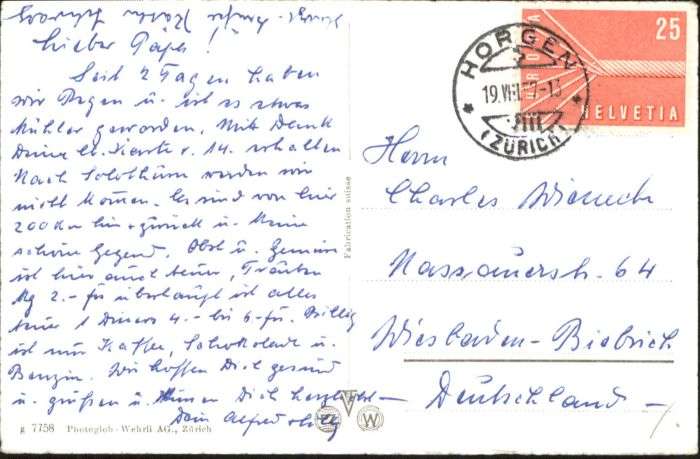 Lieber Papa!
Seit 2 Tagen haben
wir Regen u. ist es etwas
kühler geworden. Mit Dank
Deine lb. Karte v. 14. erhalten
Nach Solothurn werden wir
nicht kommen. Es sind von hier
200 Km hin + zurück u. keine
schöne Gegend. Obst u. Gemüse
ist hier auch teuer, Trauben
Kg 2.- fr überhaupt ist alles
teuer 1 Diners 4.- bis 6.- fr. Billig
ist nur Kaffee, Schokolade u.
Benzin. Wir hoffen Dich gesund
u. grüßen u. küssen Dich herzlichst
Dein Alfred
g 7758 Photoglob-Wehrli AG., Zürich
Fabrication suisse
W
HORGEN
19.VIII.57-13
(ZÜRICH)
25
EUROPA
HELVETIA
Herrn
Charles
Nassauerstr. 64
Wiesbaden-Biebrich
Deutschland